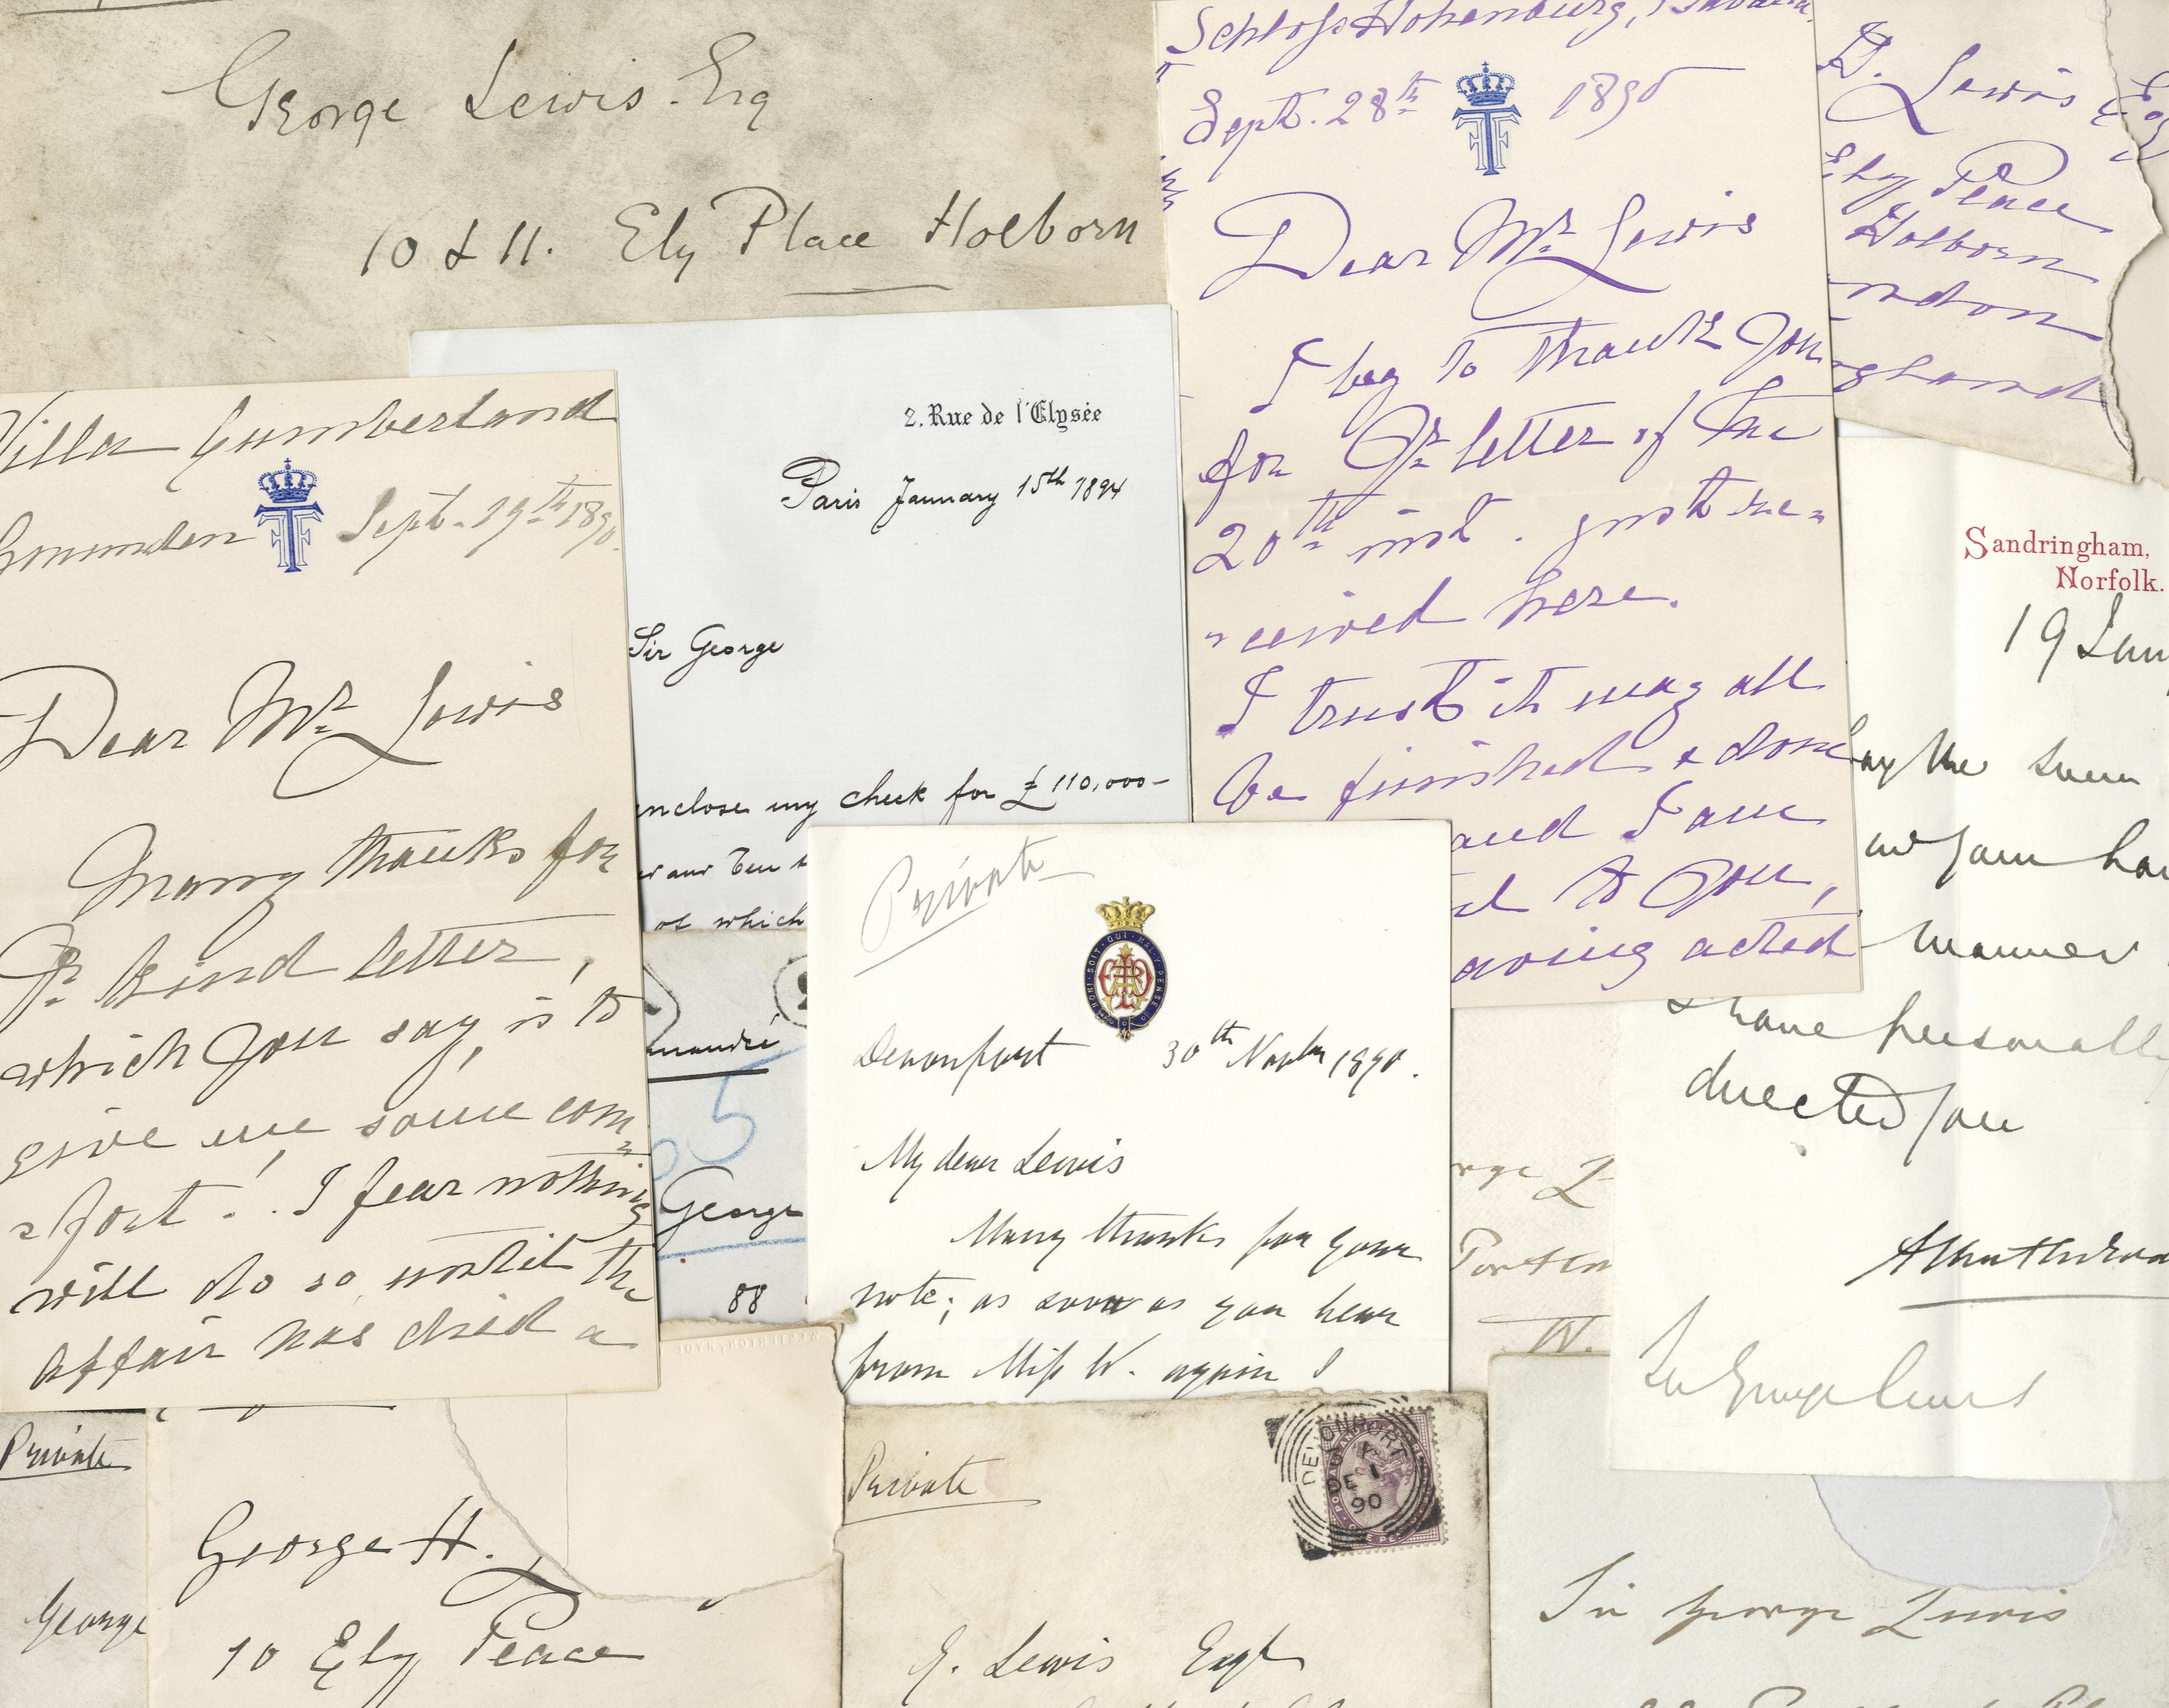 George Lewis. Esq
10 & 11. Ely Place Holborn
Schloss Hohenburg, Bavaria.
Sept. 28th 1890
Dear Mr. Lewis
I beg to thank you
for Yr. letter of the
20th inst. just re=
=ceived here.
I trust it may all
be finished & done
and I am
to You,
aving acted
G. Lewis Esq
Ely Place
Holborn
ndon
gland
2. Rue de l'Elysée
Paris January 15th 1894
Sir George
enclose my check for £110,000-
of which
Villa Cumberland
Gmunden Sept. 19th 1890.
Dear Mr. Lewis
Many thanks for
Yr. kind letter,
which You say, is to
give me some com=
=fort! . I fear nothing
will do so until the
affair has died a
Sandringham,
Norfolk.
19 Jan
manner
I have personally
directed you
Sir George Lewis
Private
HONI · SOIT · QUI · MAL · Y · PENSE
Devonport 30th Novbr 1890.
My dear Lewis
Many thanks for your
note; as soon as you hear
from Miss W. again I
5
George
88
rge L
Portlan
W.
Private
George
George H. L
10 Ely Place
Private
DEVONPORT
DE 1
90
G. Lewis Esqr
Sir George Lewis